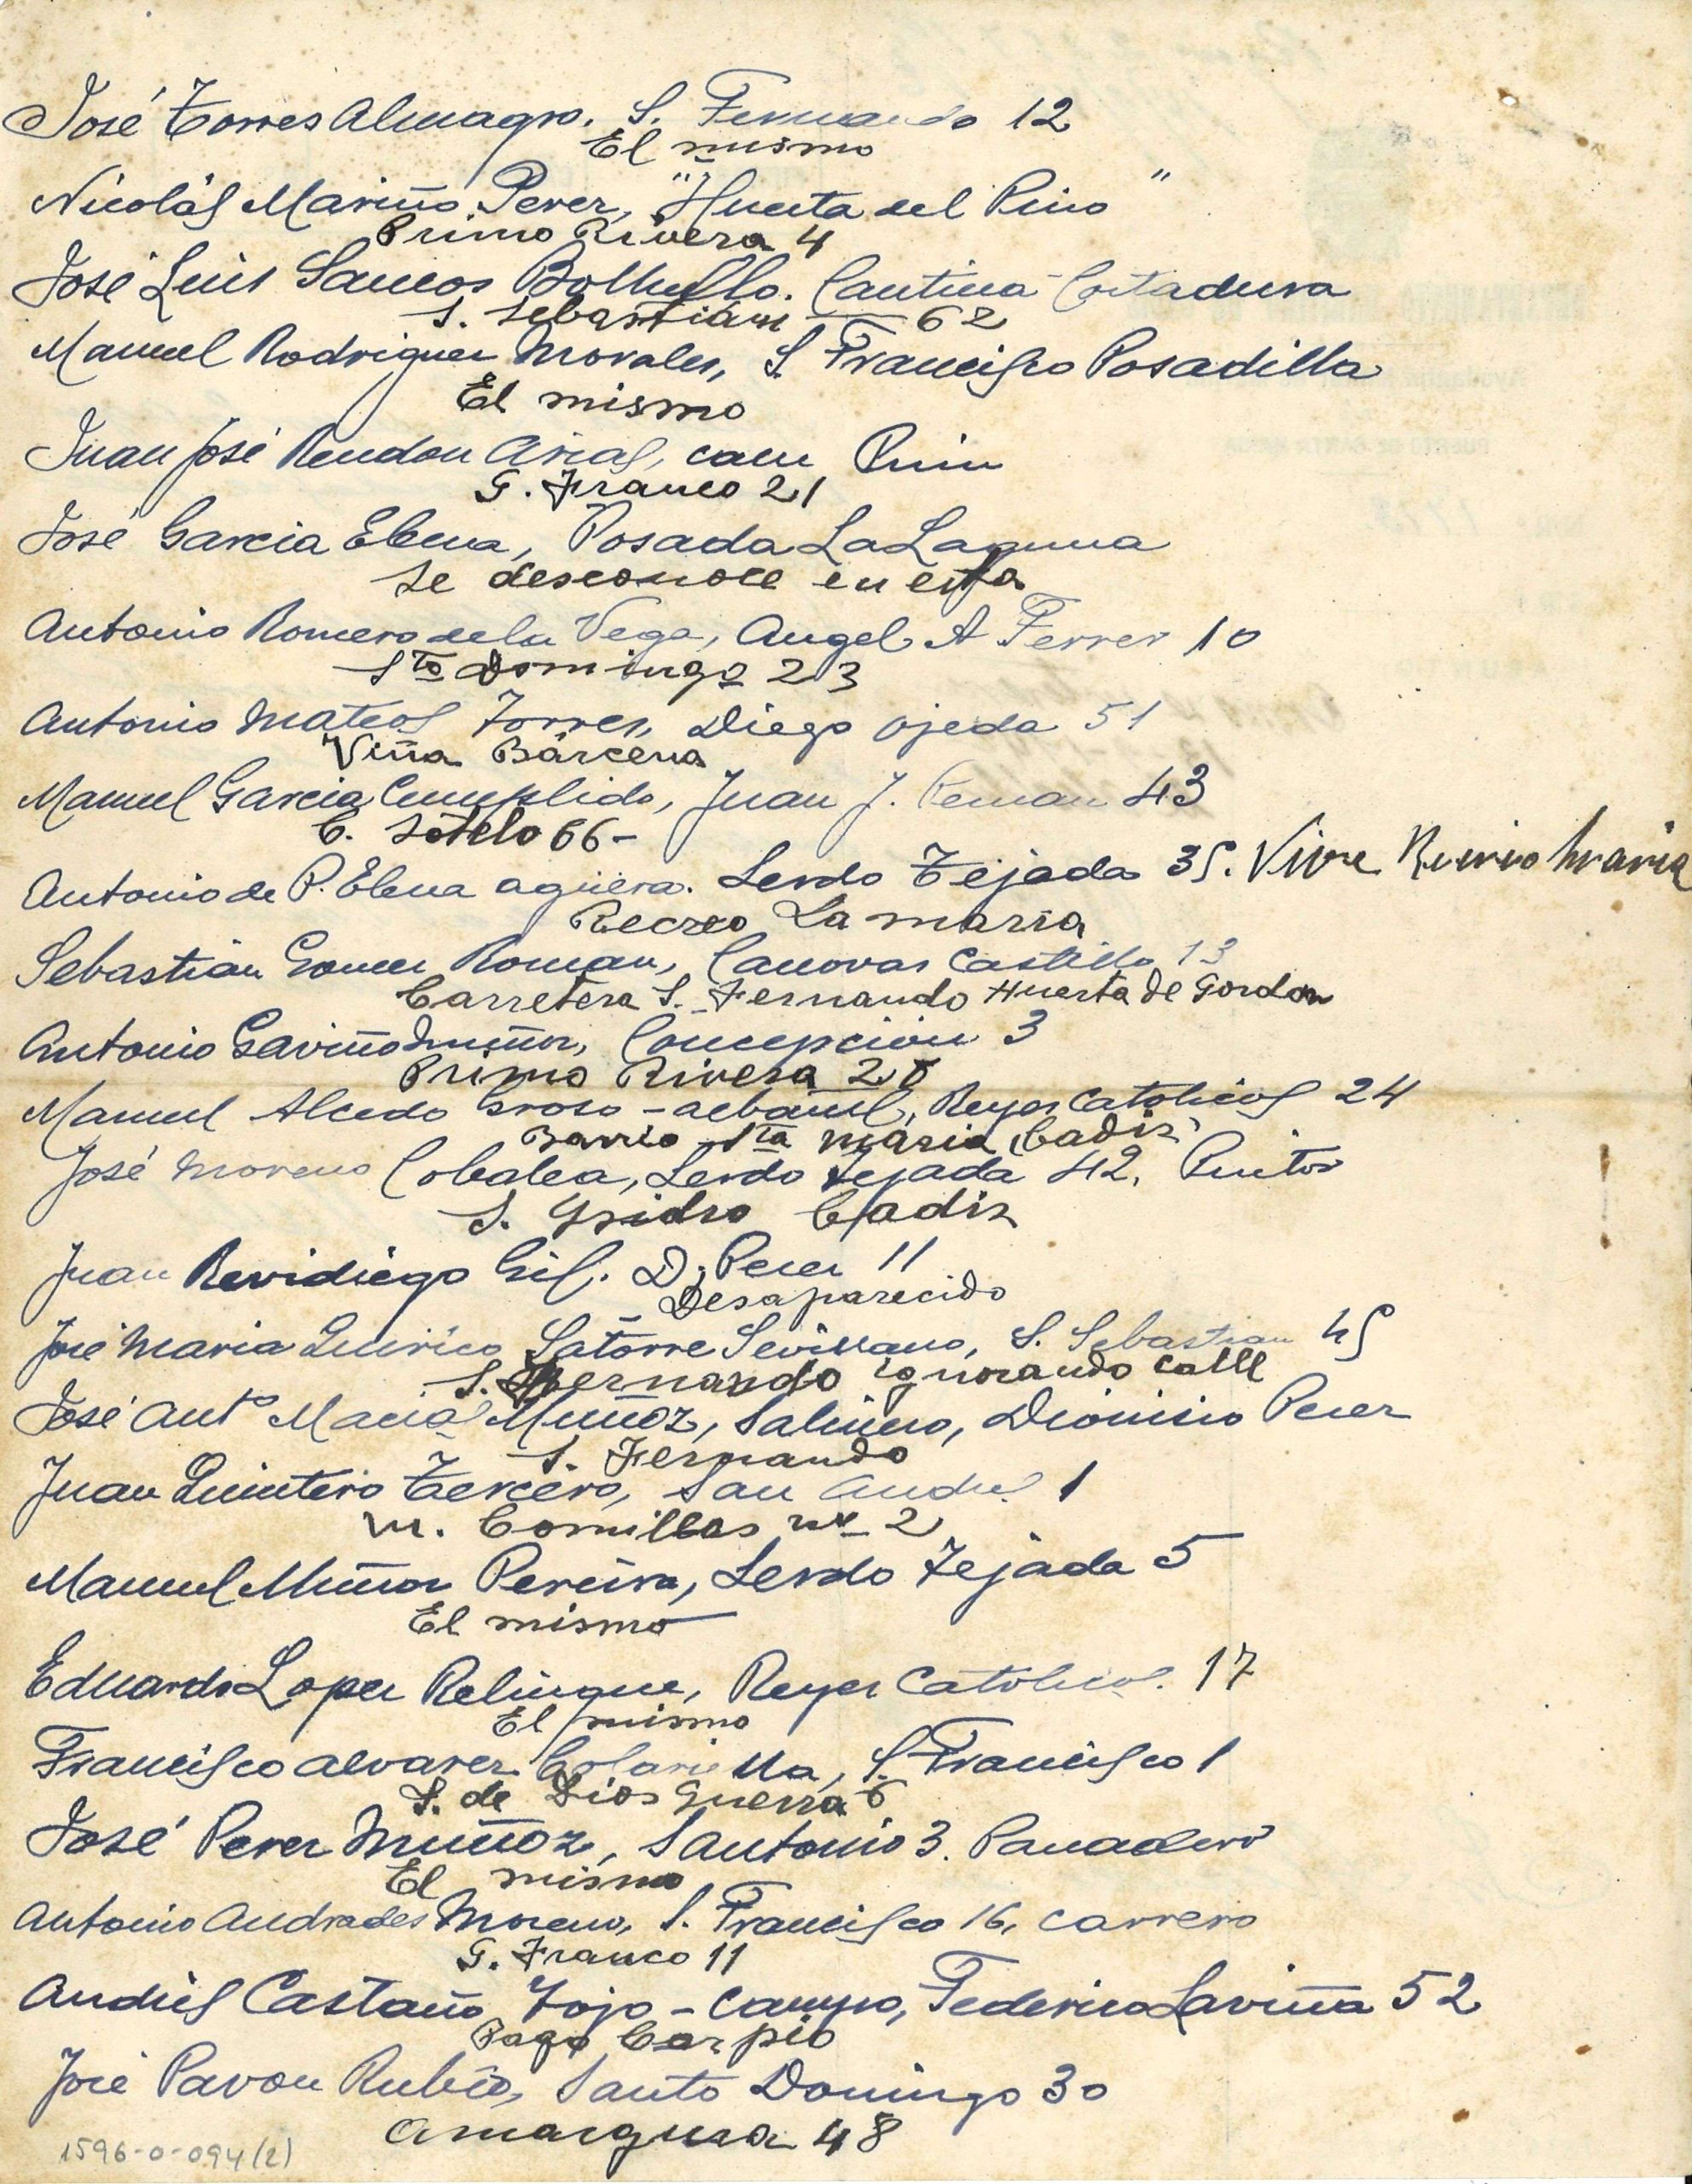 José Torres Almagro. S. Fernando 12
El mismo
Nicolás Mariño Perez, "Huerta del Pino"
Primo Rivera 4
José Luis Sancos Bollullo. Cantina Cortadura
S. Sebastian 62
Manuel Rodriguez Morales, S. Francisco Posadilla
El mismo
Juan José Rendon Arias,
G. Franco 21
José Garcia Elena, Posada La Laguna
se desconoce en esta
Antonio Romero de la Vega, Angel A Ferrer 10
Sto Domingo 23
Antonio Mateos Torres, Diego Ojeda 51
Viña Bárcena
Manuel Garcia Cumplido, Juan J. Peman 43
C. Sotelo 66-
Antonio de P. Elena aguera. Lerdo Tejada 35. Vive Maria
Recreo La maria
Sebastián Gomez Roman, Canovas Castillo 13
Carretera S. Fernando Huerta de Gordon
Antonio Gaviño Muñoz, Concepcion 3
Primo Rivera
Manuel Alcedo Groso - albañil, Reyes Catolicos 24
Barrio Sta Maria Cadiz
José Moreno Cobalea, Lerdo Tejada 42. Pintor
S. Ysidro Cadiz
Juan Revidiego Gil. D. Perez 11
Desaparecido
José Maria Quirico Latorre Sevillano, S. Sebastian 45
S. Fernando ignorando calle
José Antº Macias Muñoz, Salinero, Dionisio Perez
S. Fernando
Juan Quintero Tercero, San Andres 1
M. Comillas nº 2
Manuel Muñoz Pereira, Lerdo Tejada 5
El mismo
Eduardo Lopez Relinque, Reyes Catolicos. 17
El mismo
Francisco alvarez, S. Francisco 1
S. de Dios Guerra 6
José Perez Muñoz, S Antonio 3. Panadero
El mismo
Antonio Andrades Moreno, S. Francisco 16, carrero
G. Franco 11
Andrés Castaño Tojo - campo, Federico Laviña 52
Pago Carpio
José Pavon Rubio, Santo Domingo 30
Amargura 48
1596-0-094(2)